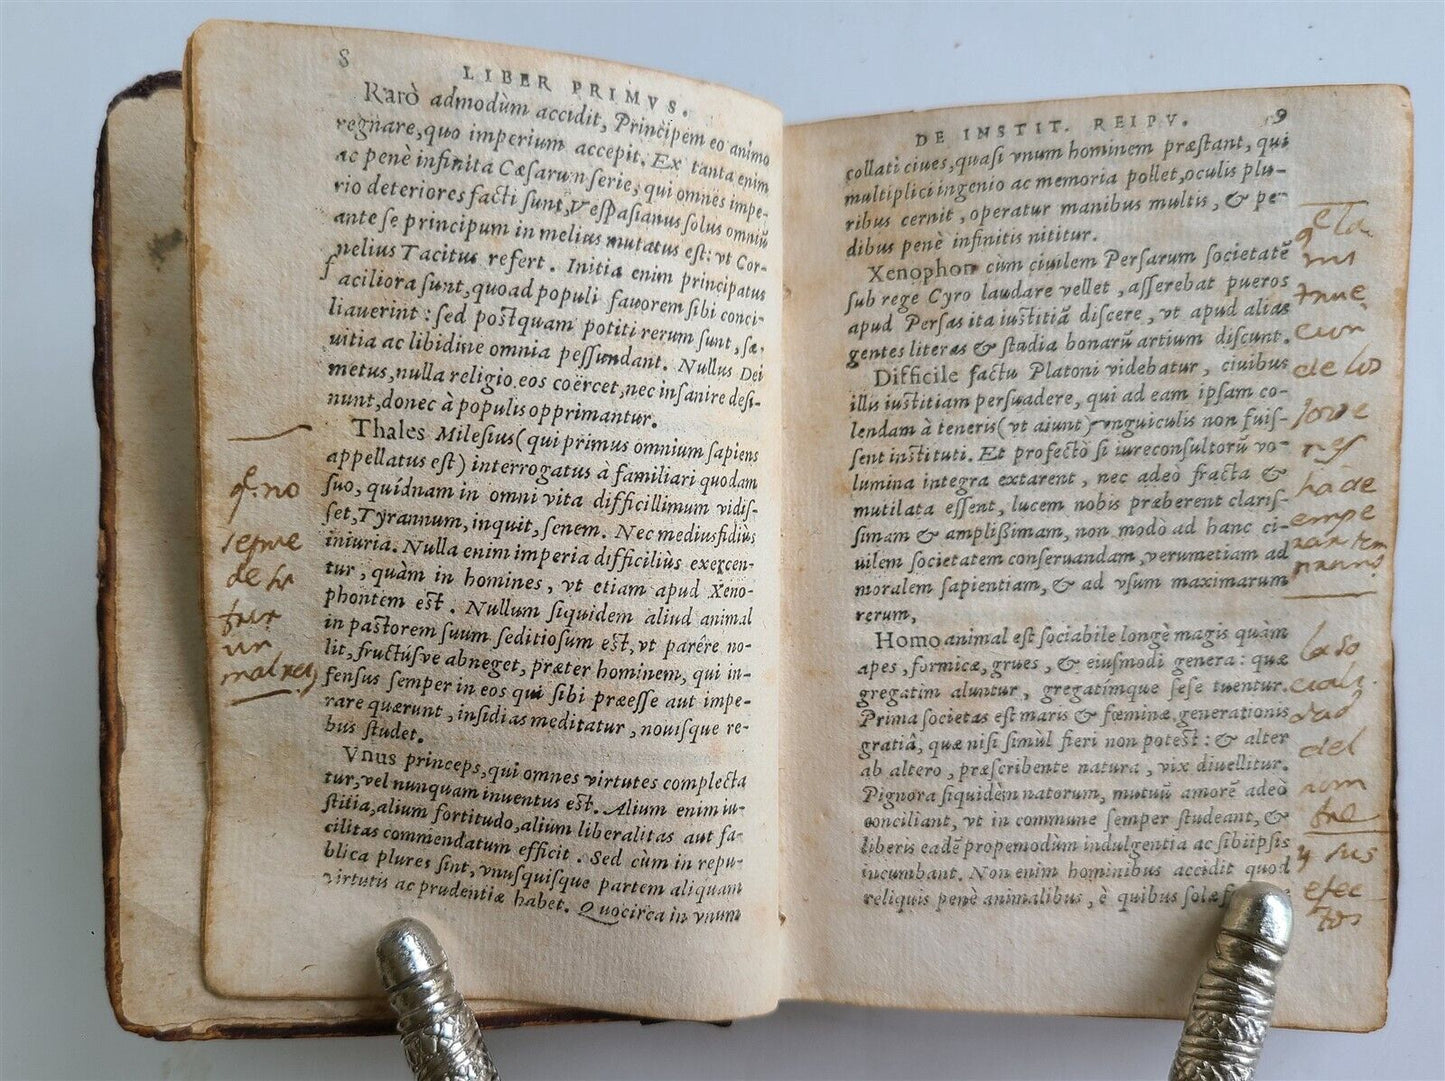 8
LIBER PRIMVS.
Rarò admodùm accidit, Principem eo animo
regnare, quo imperium accepit. Ex tanta enim
ac penè infinita Cæsarum serie, qui omnes impe-
rio deteriores facti sunt, Vespasianus solus omniũ
ante se principum in melius mutatus est: vt Cor-
nelius Tacitus refert. Initia enim principatus
faciliora sunt, quoad populi fauorem sibi conci-
liauerint: sed postquam potiti rerum sunt, sæ-
uitia ac libidine omnia pessundant. Nullus Dei
metus, nulla religio eos coërcet, nec insanire desi-
nunt, donec à populis opprimantur.
Thales Milesius (qui primus omnium sapiens
appellatus est) interrogatus à familiari quodam
suo, quidnam in omni vita difficillimum vidis-
set, Tyrannum, inquit, senem. Nec mediusfidiùs
iniuria. Nulla enim imperia difficiliùs exercen-
tur, quàm in homines, vt etiam apud Xeno-
phontem est. Nullum siquidem aliud animal
in pastorem suum seditiosum est, vt parêre no-
lit, fructúsve abneget, præter hominem, qui in-
fensus semper in eos qui sibi præesse aut impe-
rare quærunt, insidias meditatur, nouisque re-
bus studet.
Vnus princeps, qui omnes virtutes complecta
tur, vel nunquam inuentus est. Alium enim iu-
stitia, alium fortitudo, alium liberalitas aut fa-
cilitas commendatum efficit. Sed cùm in repu-
blica plures sint, vnusquisque partem aliquam
virtutis ac prudentiæ habet. Quocirca in vnum
no
de la
un
DE INSTIT. REIPV.
9
collati ciues, quasi vnum hominem præstant, qui
multiplici ingenio ac memoria pollet, oculis plu-
ribus cernit, operatur manibus multis, & pe-
dibus penè infinitis nititur.
Xenophon cùm ciuilem Persarum societatẽ
sub rege Cyro laudare vellet, asserebat pueros
apud Persas ita iustitiã discere, vt apud alias
gentes literas & studia bonarũ artium discunt.
Difficile factu Platoni videbatur, ciuibus
illis iustitiam persuadere, qui ad eam ipsam co-
lendam à teneris (vt aiunt) vnguiculis non fuis-
sent instituti. Et profectò si iureconsultorũ vo-
lumina integra extarent, nec adeò fracta &
mutilata essent, lucem nobis præberent claris-
simam & amplißimam, non modò ad hanc ci-
uilem societatem conseruandam, verumetiam ad
moralem sapientiam, & ad vsum maximarum
rerum.
Homo animal est sociabile longè magis quàm
apes, formicæ, grues, & eiusmodi genera: quæ
gregatim aluntur, gregatimque sese tuentur.
Prima societas est maris & fœminæ, generationis
gratiâ, quæ nisi simùl fieri non potest: & alter
ab altero, præscribente natura, vix diuellitur.
Pignora siquidèm natorum, mutuũ amorẽ adeò
conciliant, vt in commune semper studeant, &
liberis eadẽ propemodùm indulgentia ac sibiipsis
incumbant. Non enim hominibus accidit quod
reliquis penè animalibus, è quibus solæ
de los
Jove
nes
ha de
empe
la so
ciali
dad
del
nom
bre
y sus
efec
tos